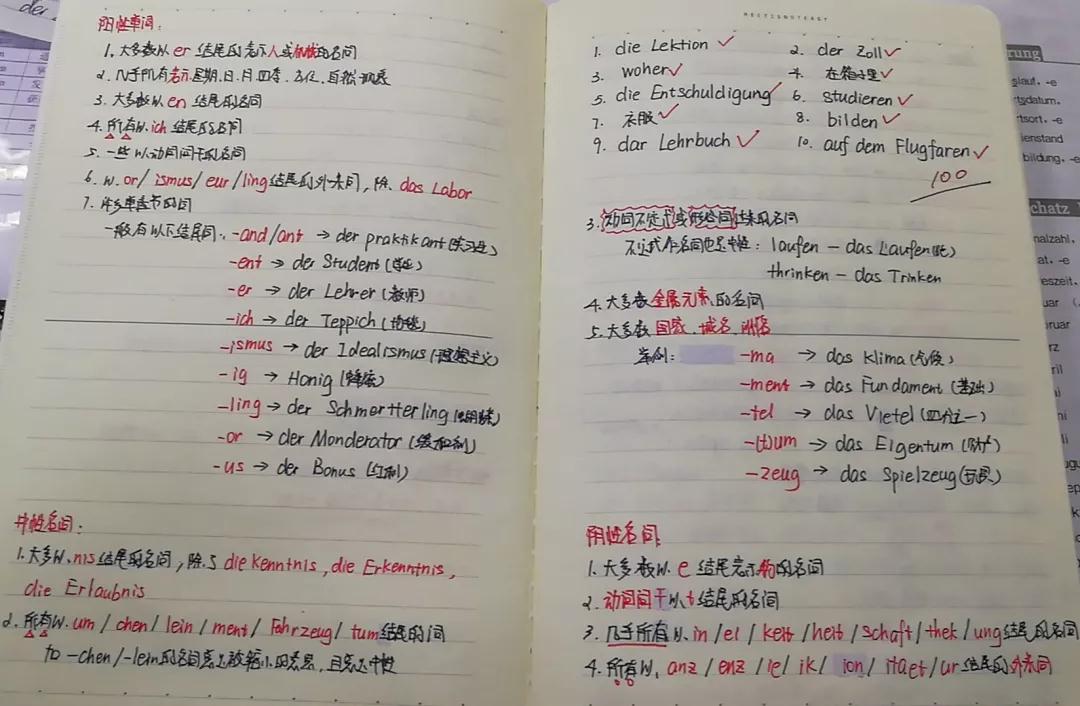 der
阳性单词:
1. 大多数以er 结尾的表示人或机械的名词
2. 几乎所有表示星期、日、月、四季、方位、自然现象
3. 大多数以en 结尾的名词
4. 所有以ich 结尾的名词
5. 一些以动词词干的名词
6. 以or/ismus/eur/ling结尾的外来词,除 das Labor
7. 许多单音节的词
一般有以下结尾词: -and/ant → der praktikant(实习生)
-ent → der Student(学生)
-er → der Lehrer(教师)
-ich → der Teppich(地毯)
-ismus → der Idealismus(理想主义)
-ig → Honig(蜂蜜)
-ling → der Schmertterling(蝴蝶)
-or → der Monderator(缓和剂)
-us → der Bonus(红利)
中性名词:
1. 大多以nis结尾的名词,除了die Kenntnis, die Erkenntnis,
die Erlaubnis
2. 所有以um/chen/lein/ment/Fahrzeug/tum结尾的词
-chen/-lein的名词表示缩小的意思,且表示中性
RECTISNOTEASY
1. die Lektion ✓ 2. der Zoll ✓
3. woher ✓ 4. 在箱子里 ✓
5. die Entschuldigung ✓ 6. studieren ✓
7. 衣服 ✓ 8. bilden ✓
9. dar Lehrbuch ✓ 10. auf dem Flugfaren ✓
100
3. 动词不定式或形容词过来的名词
不定式作名词也是中性: laufen – das Laufen
thrinken – das Trinken
4. 大多数金属元素的名词
5. 大多数国家、城名、洲名
举例: -ma → das Klima(气候)
-ment → das Fundament(基础)
-tel → das Vietel(四分之一)
-(t)um → das Eigentum(财产)
-zeug → das Spielzeug(玩具)
阴性名词
1. 大多数以e 结尾表示物的名词
2. 动词词干以t结尾的名词
3. 几乎所有以in/ei/keit/heit/schaft/thek/ung结尾的名词
4. 所有以anz/enz/ie/ik/ion/itaet/ur结尾的外来词
rung
slauf, -e
rtsdatum,
rtsort, -e
ienstand
bildung, -e
chatz
nalzahl,
at, -e
eszeit,
uar
ruar
rz
ril